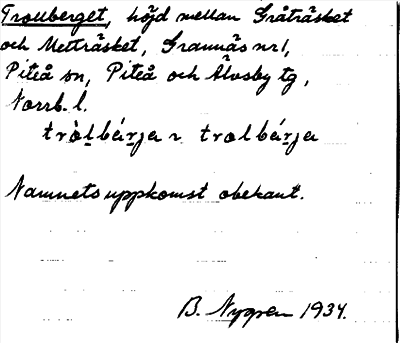 Trollberget, höjd mellan Gråträsket
och Metträsket, Grannäs nr 1,
Piteå sn, Piteå och Älvsby tg,
Norrb. l.
trȯlbärja ~ trolbärja
Namnets uppkomst obekant.
B. Nygren 1934.